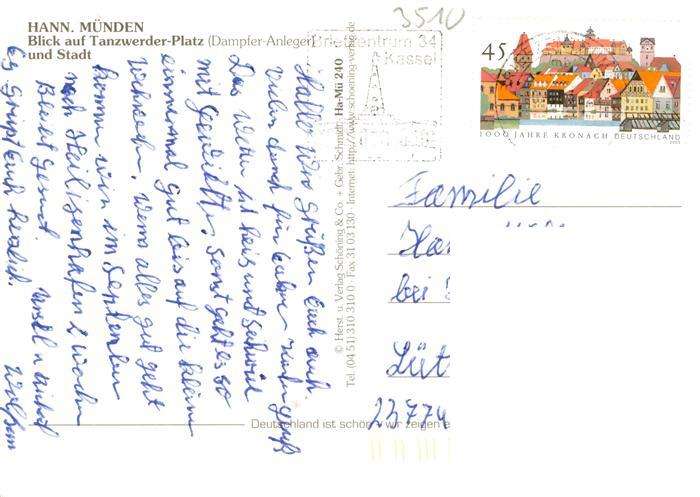 HANN. MÜNDEN
Blick auf Tanzwerder-Platz (Dampfer-Anleger)
und Stadt
3510
Briefzentrum 34
Kassel
45
1000 JAHRE KRONACH DEUTSCHLAND
Hallo wir grüßen Euch auch.
Vielen Dank für Euren
Das Wetter ist heis und schwül
mit Gewitter, sonst geht es so
einermal gut bis auf die kleinen
wenn alles gut geht
kommen wir im September
nach Heiligenhafen 2 Wochen
Bleibt gesund.
Es grüßt Euch herzlich.
© Herst. u. Verlag Schöning & Co. + Gebr. Schmidt Ha-Mü 240
Tel. (04 51) 310 310 0 · Fax 31 03 130 · Internet: http://www.schoening-verlag.de
Familie
bei
Lüt
23774
Deutschland ist schön - wir zeigen e